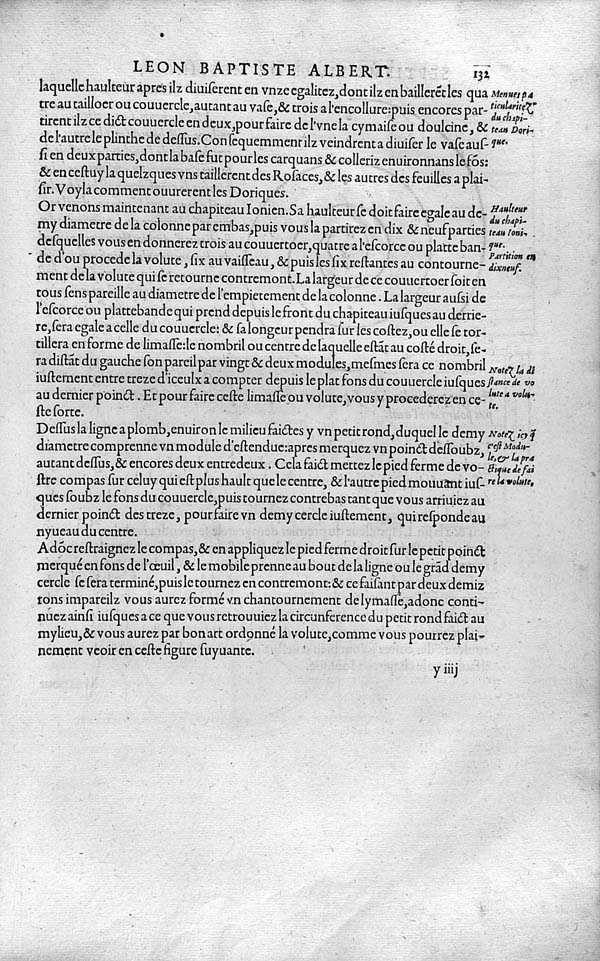 LEON BAPTISTE ALBERT. 132
laquelle haulteur apres ilz diuiserent en vnze egalitez, dont ilz en baillerẽt les qua
tre au tailloer ou couuercle, autant au vase, & trois a l'encollure: puis encores par-
tirent ilz ce dict couuercle en deux, pour faire de l'vne la cymaise ou doulcine, &
de l'autre le plinthe de dessus. Consequemment ilz veindrent a diuiser le vase aus-
si en deux parties, dont la base fut pour les carquans & colleriz enuironnans le fõs:
& en cestuy la quelzques vns taillerent des Rosaces, & les autres des feuilles a plai-
sir. Voyla comment ouurerent les Doriques.
Menues pa
ticularitez
du chapi-
teau Dori-
que.
Or venons maintenant au chapiteau Ionien. Sa haulteur se doit faire egale au de-
my diametre de la colonne par embas, puis vous la partirez en dix & neuf parties
desquelles vous en donnerez trois au couuertoer, quatre a l'escorce ou platte ban-
de d'ou procede la volute, six au vaisseau, & puis les six restantes au contourne-
ment de la volute qui se retourne contremont. La largeur de ce couuertoer soit en
tous sens pareille au diametre de l'empietement de la colonne. La largeur aussi de
l'escorce ou plattebande qui prend depuis le front du chapiteau iusques au derrie-
re, sera egale a celle du couuercle: & sa longeur pendra sur les costez, ou elle se tor-
tillera en forme de limasse: le nombril ou centre de laquelle estãt au costé droit, se-
ra distãt du gauche son pareil par vingt & deux modules, mesmes sera ce nombril
iustement entre treze d'iceulx a compter depuis le plat fons du couuercle iusques
au dernier poinct. Et pour faire ceste limasse ou volute, vous y procederez en ce-
ste sorte.
Haulteur
du chapi-
teau Ioni-
que.
Partition en
dixneuf.
Notez la di
stance de vo
lute a volu-
te.
Dessus la ligne a plomb, enuiron le milieu faictes y vn petit rond, duquel le demy
diametre comprenne vn module d'estendue: apres merquez vn poinct dessoubz,
autant dessus, & encores deux entredeux. Cela faict mettez le pied ferme de vo-
stre compas sur celuy qui est plus hault que le centre, & l'autre pied mouuant ius-
ques soubz le fons du couuercle, puis tournez contrebas tant que vous arriuiez au
dernier poinct des treze, pour faire vn demy cercle iustement, qui responde au
nyueau du centre.
Notez icy q̃
c'est Modu-
le, & la pra
ctique de fai
re la volute.
Adõc restraignez le compas, & en appliquez le pied ferme droit sur le petit poinct
merqué en fons de l'œuil, & le mobile prenne au bout de la ligne ou le grãd demy
cercle se sera terminé, puis le tournez en contremont: & ce faisant par deux demiz
rons impareilz vous aurez formé vn chantournement de lymasse, adonc conti-
nuez ainsi iusques a ce que vous retrouuiez la circunference du petit rond faict au
mylieu, & vous aurez par bon art ordonné la volute, comme vous pourrez plai-
nement veoir en ceste figure suyuante.
y iiij